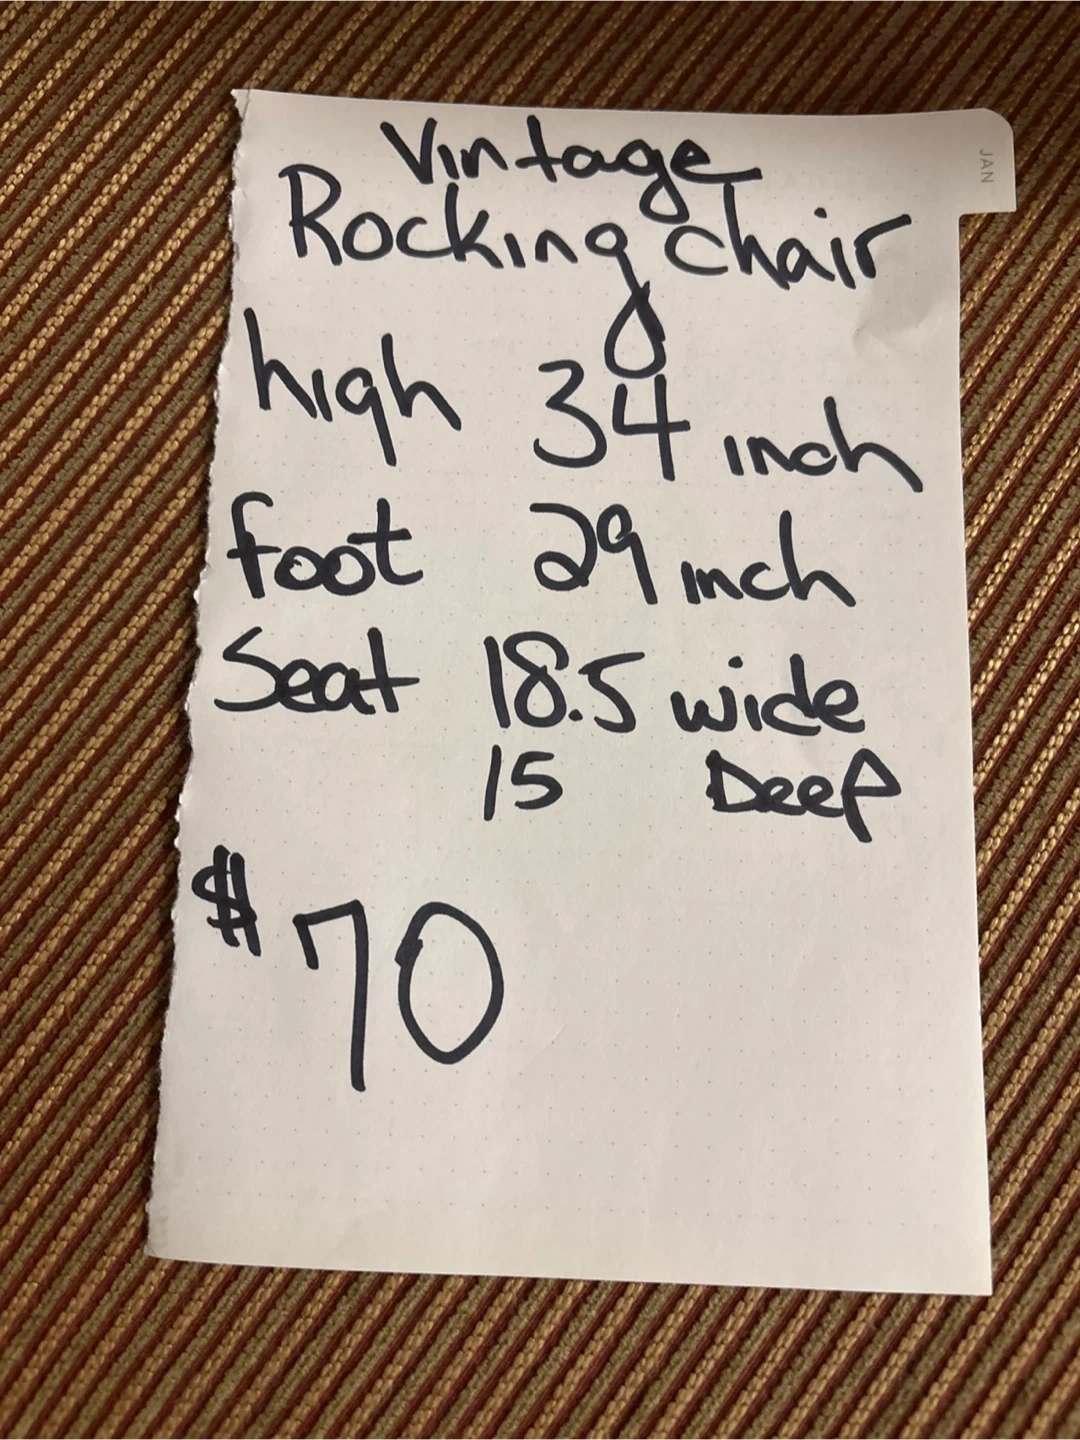 JAN
Vintage
Rocking chair
high 34 inch
foot 29 inch
Seat 18.5 wide
15 Deep
$70